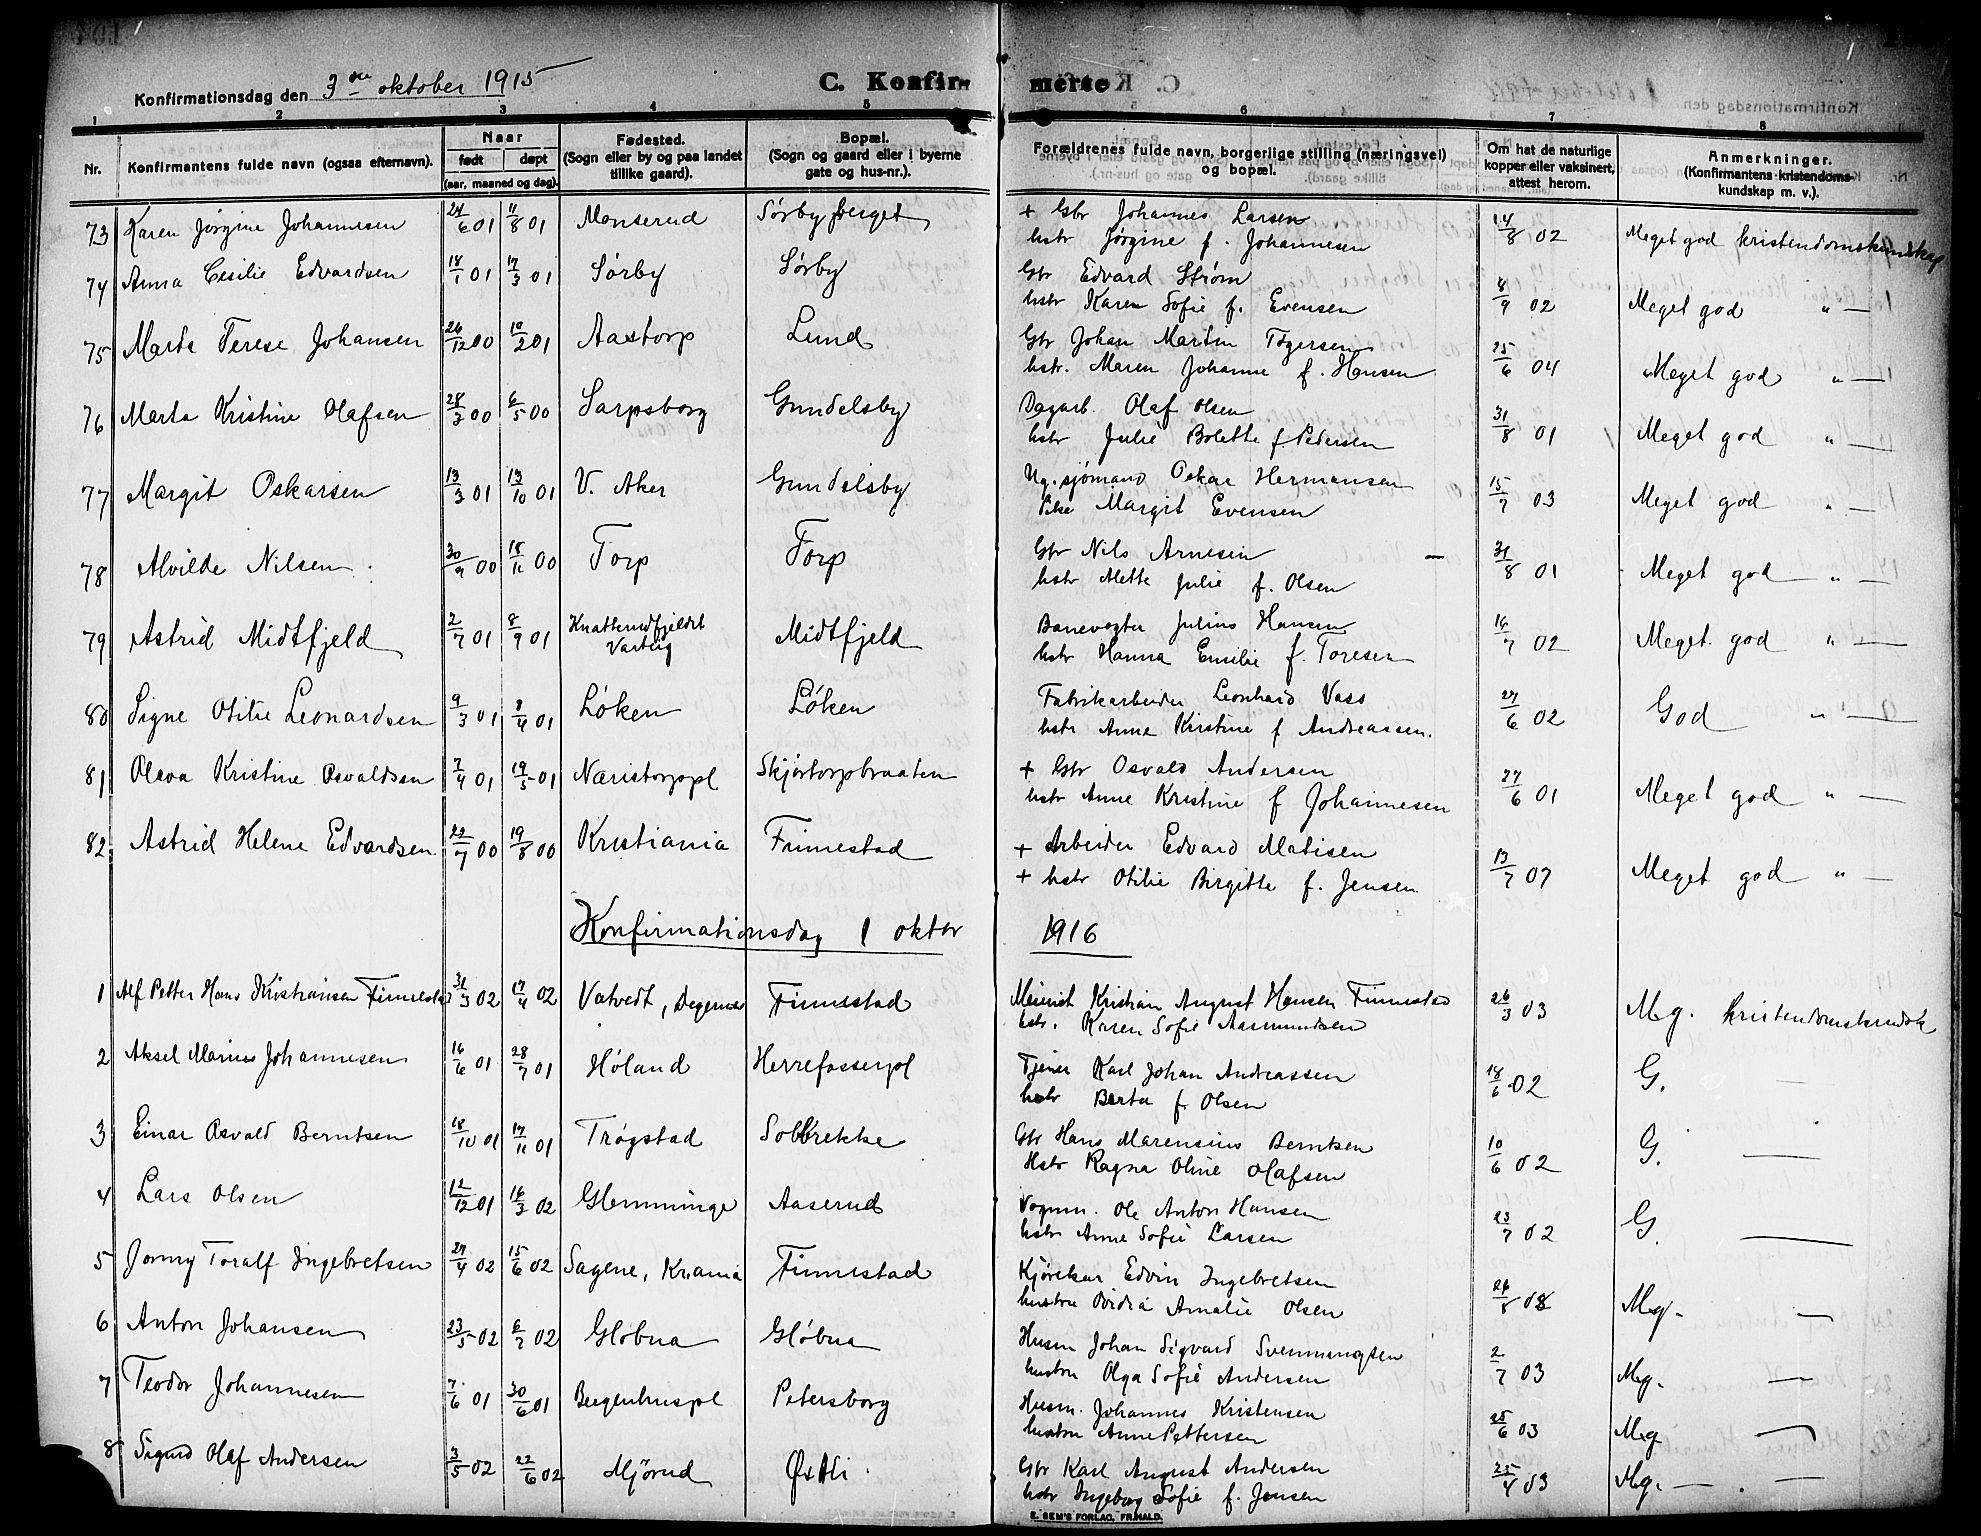 Konfirmationsdag den 3die oktober 1915
C. Konfirmerte
1 2 3 4 5 6 7 8
Nr. Konfirmantens fulde navn (ogsaa efternavn). Naar født døpt (aar, maaned og dag). Fødested. (Sogn eller by og paa landet tillike gaard). Bopæl. (Sogn og gaard eller i byerne gate og hus-nr.). Forældrenes fulde navn, borgerlige stilling (næringsvei) og bopæl. Om hat de naturlige kopper eller vaksinert, attest herom. Anmerkninger. (Konfirmantens kristendomskundskap m. v.).
73 Karen Jørgine Johannesen 24/6 01 11/8 01 Monserud Sørbyberget + Gbr Johannes Larsen 14/8 02 Meget god kristendomskundskap
hstr Jørgine f. Johannesen
74 Anna Cesilie Edvardsen 18/1 01 17/3 01 Sørby Sørby Gbr Edvard Strøm 8/9 02 Meget god " —
hstr Karen Sofie f. Evensen
75 Marta Terese Johansen 26/12 00 10/2 01 Aastorp Lund Gbr Johan Martin Tøgersen 25/6 04 Meget god " —
hstr. Maren Johanne f. Hansen
76 Marta Kristine Olafsen 28/3 00 6/5 00 Sarpsborg Gundelsby Dagarb. Olaf Olsen 31/8 01 Meget god " —
hstr Julie Bolette f. Pedersen
77 Margit Oskarsen 13/3 01 13/10 01 V. Aker Gundelsby Ug. sjømand Oskar Hermansen 15/7 03 Meget god " —
Pike Margit Evensen
78 Alvilde Nilsen 30/9 00 18/11 00 Torp Torp Gbr Nils Arnesen — 31/8 01 Meget god " —
hstr Alette Julie f. Olsen
79 Astrid Midtfjeld 2/7 01 8/9 01 Knatterudfjeldet Varteig Midtfjeld Banevogter Julius Hansen 16/7 02 Meget god " —
hstr Hanna Emilie f. Toresen
80 Signe Otilie Leonardsen 9/3 01 8/4 01 Løken Løken Fabrikarbeider Leonhard Vass 27/6 02 God " —
hstr Anna Kristine f Andreassen.
81 Olava Kristine Osvaldsen 7/4 01 19/5 01 Næristorppl Skjørtorpbraaten + Gbr Osvald Andersen 27/6 01 Meget god " —
hstr Anne Kristine f Johannesen
82 Astrid Helene Edvardsen 22/7 00 19/8 00 Kristiania Finnestad + Arbeider Edvard Matisen 13/7 07 Meget god " —
+ hstr Otilie Birgitte f. Jensen
Konfirmationsdag 1 oktbr 1916
1 Alf Petter Hans Kristiansen Finnestad 31/3 02 17/4 02 Vatvedt, Degernes Finnestad Kristian August Hansen Finnestad 26/3 03 M.g. kristendomskundsk
hstr. Karen Sofie Aasmundsen
2 Aksel Marius Johannesen 16/6 01 28/7 01 Høland Herrefosserpl Tjener Karl Johan Andreassen 18/6 02 G. —
hstr Berta f. Olsen
3 Einar Osvald Berntsen 18/10 01 17/11 01 Trøgstad Solbrekke Gbr Hans Marensius Berntsen 10/6 02 G. —
Hstr Ragna Oline Olafsen
4 Lars Olsen 12/12 01 16/3 02 Glemminge Aaserud Vognm. Ole Anton Hansen 23/7 02 G. —
hstr Anne Sofie Larsen
5 Jonny Toralf Ingebretsen 27/4 02 15/6 02 Sagene, Kr.ania Finnestad Kjørekar Edvin Ingebretsen 26/8 08 M.g. —
hustru Amalie Olsen
6 Anton Johansen 23/5 02 6/7 02 Gløbua Gløbua Husm Johan Sigvard Svenningsen 2/7 03 M.g. —
hustru Olga Sofie Andersen
7 Teodor Johannesen 7/6 01 30/6 01 Bergenhuspl Petersborg Husm. Johannes Kristensen 25/6 03 M.g —
hustru Anne Pettersen
8 Sigurd Olaf Andersen 3/5 02 22/6 02 Mjørud Østli Gbr Karl August Andersen 25/4 03 M.g. —
hstr Ingeborg Sofie f. Jensen
E. SEM'S FORLAG, FR.HALD.